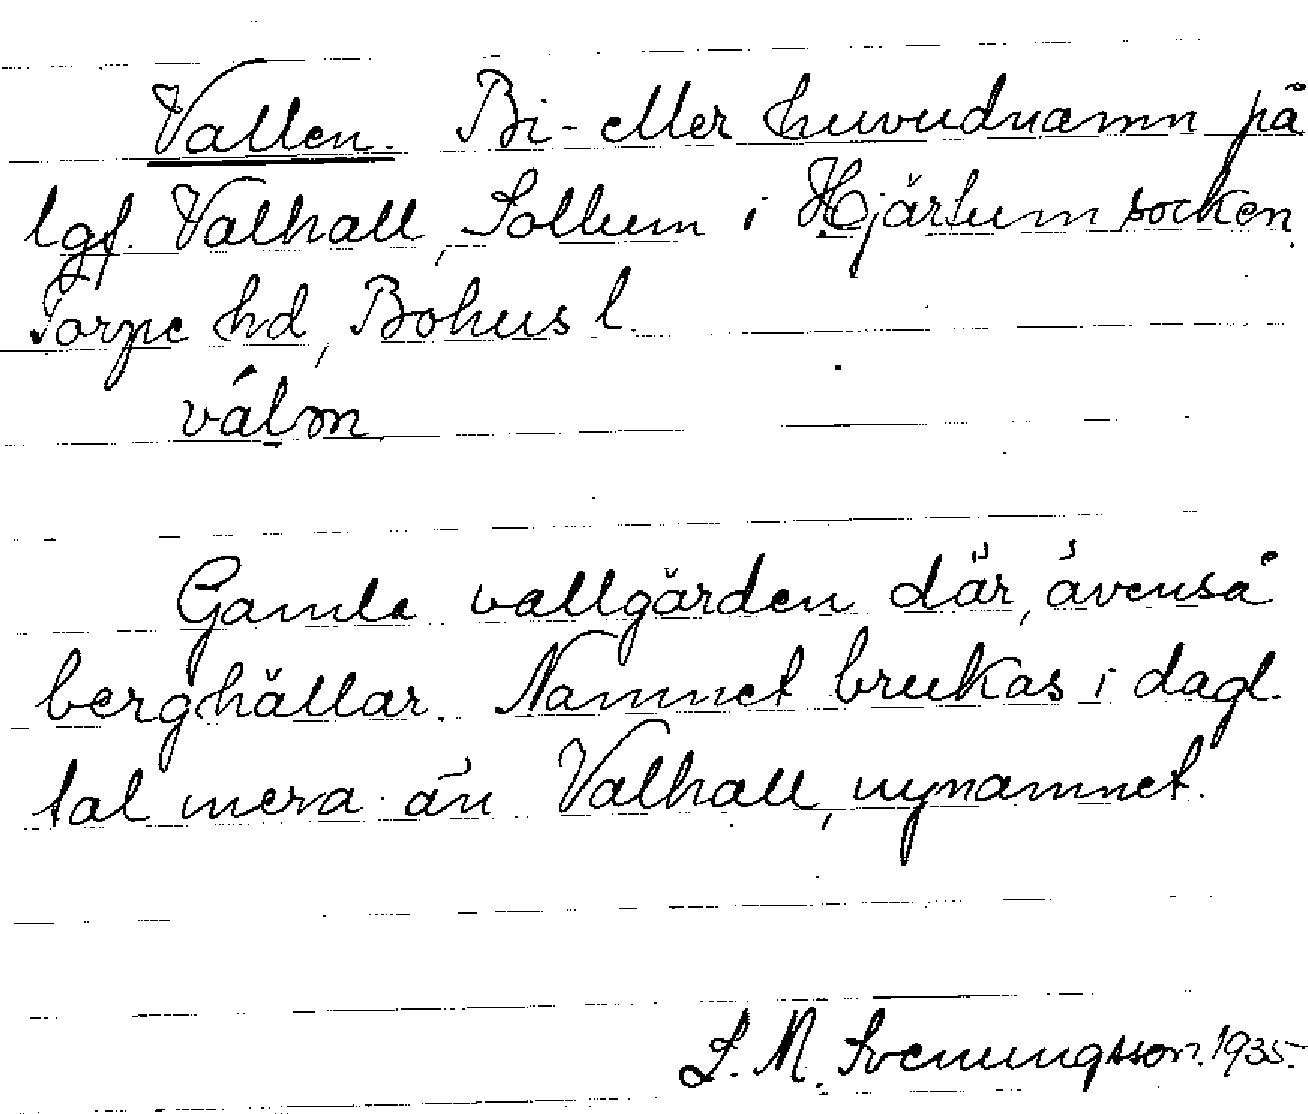 Vallen. Bi- eller huvudnamn på
lgf. Valhall, Sollum i Hjärtum socken,
Torpe hd, Bohus l.
válṃn
Gamla vallgården där, ävenså
berghällar. Namnet brukas i dagl.
tal mera än Valhall, nynamnet.
S. M. Svenungsson. 1935.